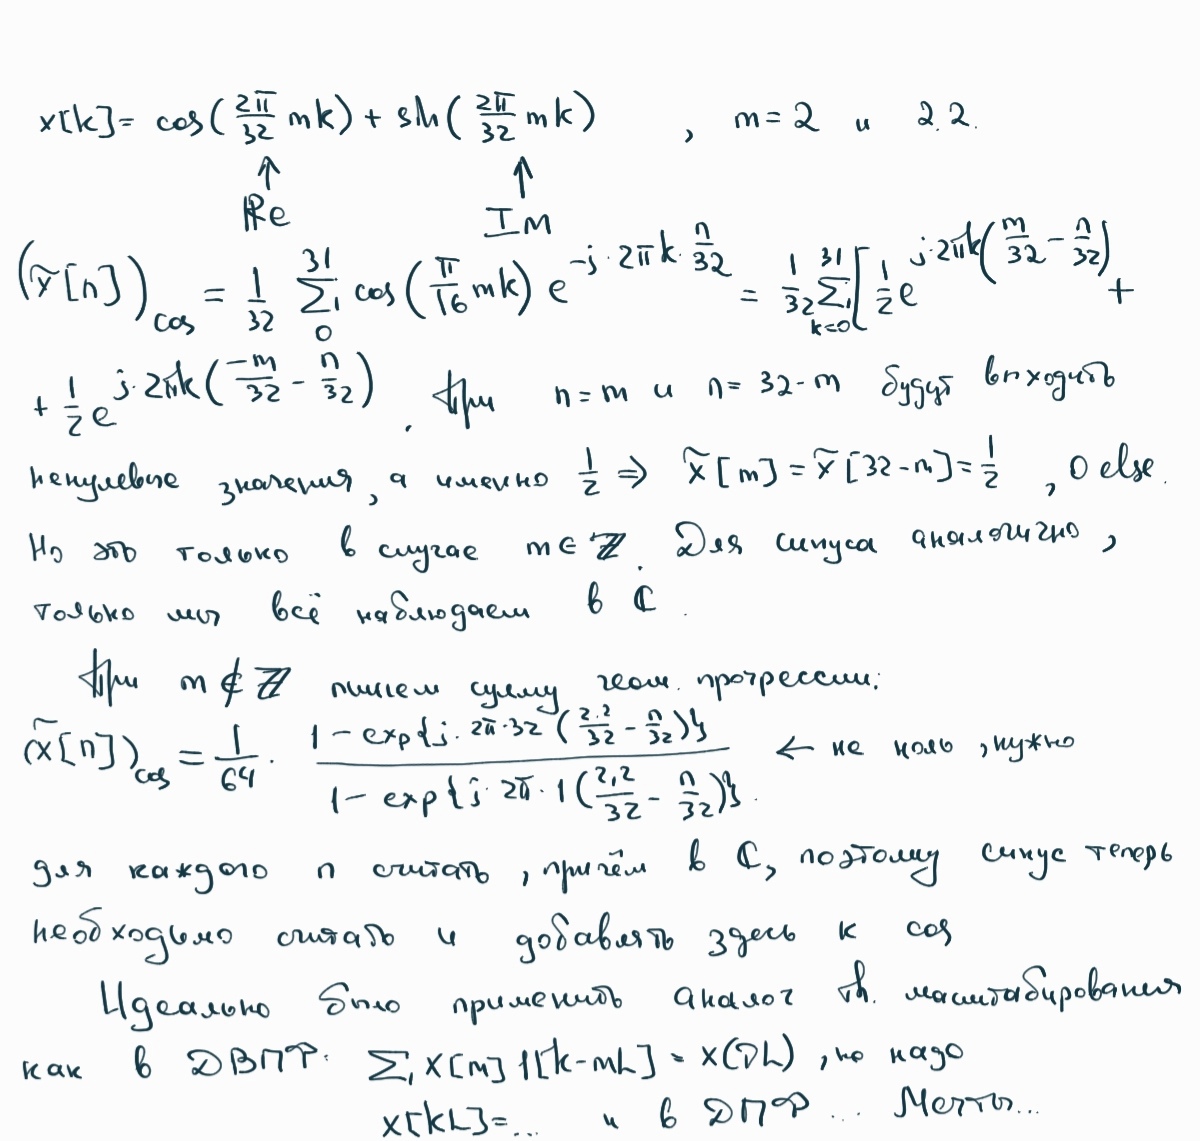 x[k] = cos(2π/32 mk) + sin(2π/32 mk) , m = 2 и 2.2.
↑ ↑
Re Im
(x̃[n])cos = 1/32 Σ_0^31 cos(π/16 mk) e^(-j·2πk·n/32) = 1/32 Σ_{k=0}^31 [1/2 e^(j·2πk(m/32 - n/32)) +
+ 1/2 e^(j·2πk(-m/32 - n/32)). При n = m и n = 32-m будут выходить
ненулевые значения, а именно 1/2 ⇒ x̃[m] = x̃[32-m] = 1/2 , 0 else.
Но это только в случае m ∈ ℤ. Для синуса аналогично,
только мы всё наблюдаем в ℂ.
При m ∉ ℤ пишем сумму геом. прогрессии:
(x̃[n])cos = 1/64 · (1 - exp{j·2π·32(2.2/32 - n/32)}) / (1 - exp{j·2π·1(2,2/32 - n/32)}) ← не ноль, нужно
для каждого n считать, причём в ℂ, поэтому синус теперь
необходимо считать и добавлять здесь к cos
Идеально было применить аналог th. масштабирования
как в ДВПФ: Σ x[m] 1[k-mL] = x(νL), но надо
x[kL] = ... и в ДПФ ... Мечты...